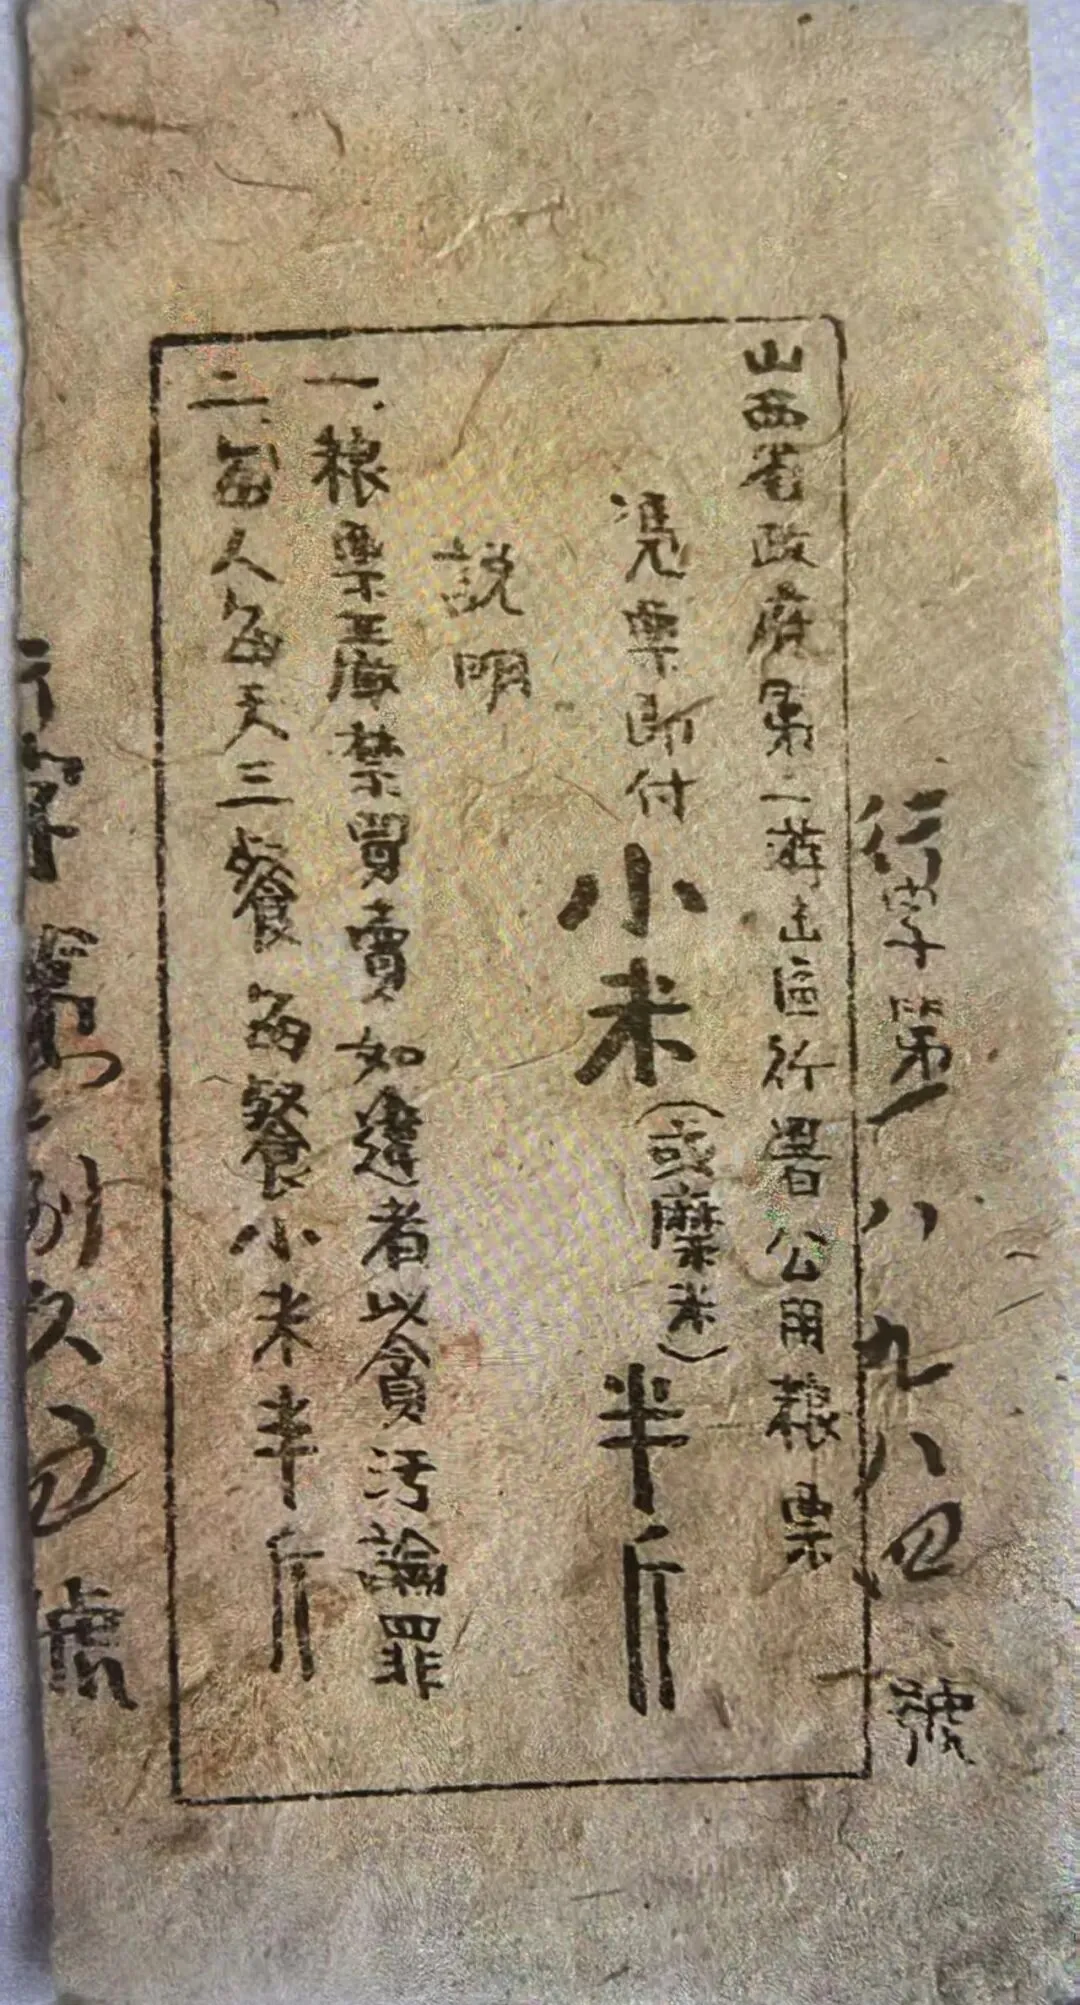 行字第八九八四號
山西省政府第二游击區行署公用粮票
憑票即付小米(或糜米)半斤
說明
一、粮票正嚴禁買賣如違者以貪污論罪
二、每人每天三餐每餐小米半斤
字第
號